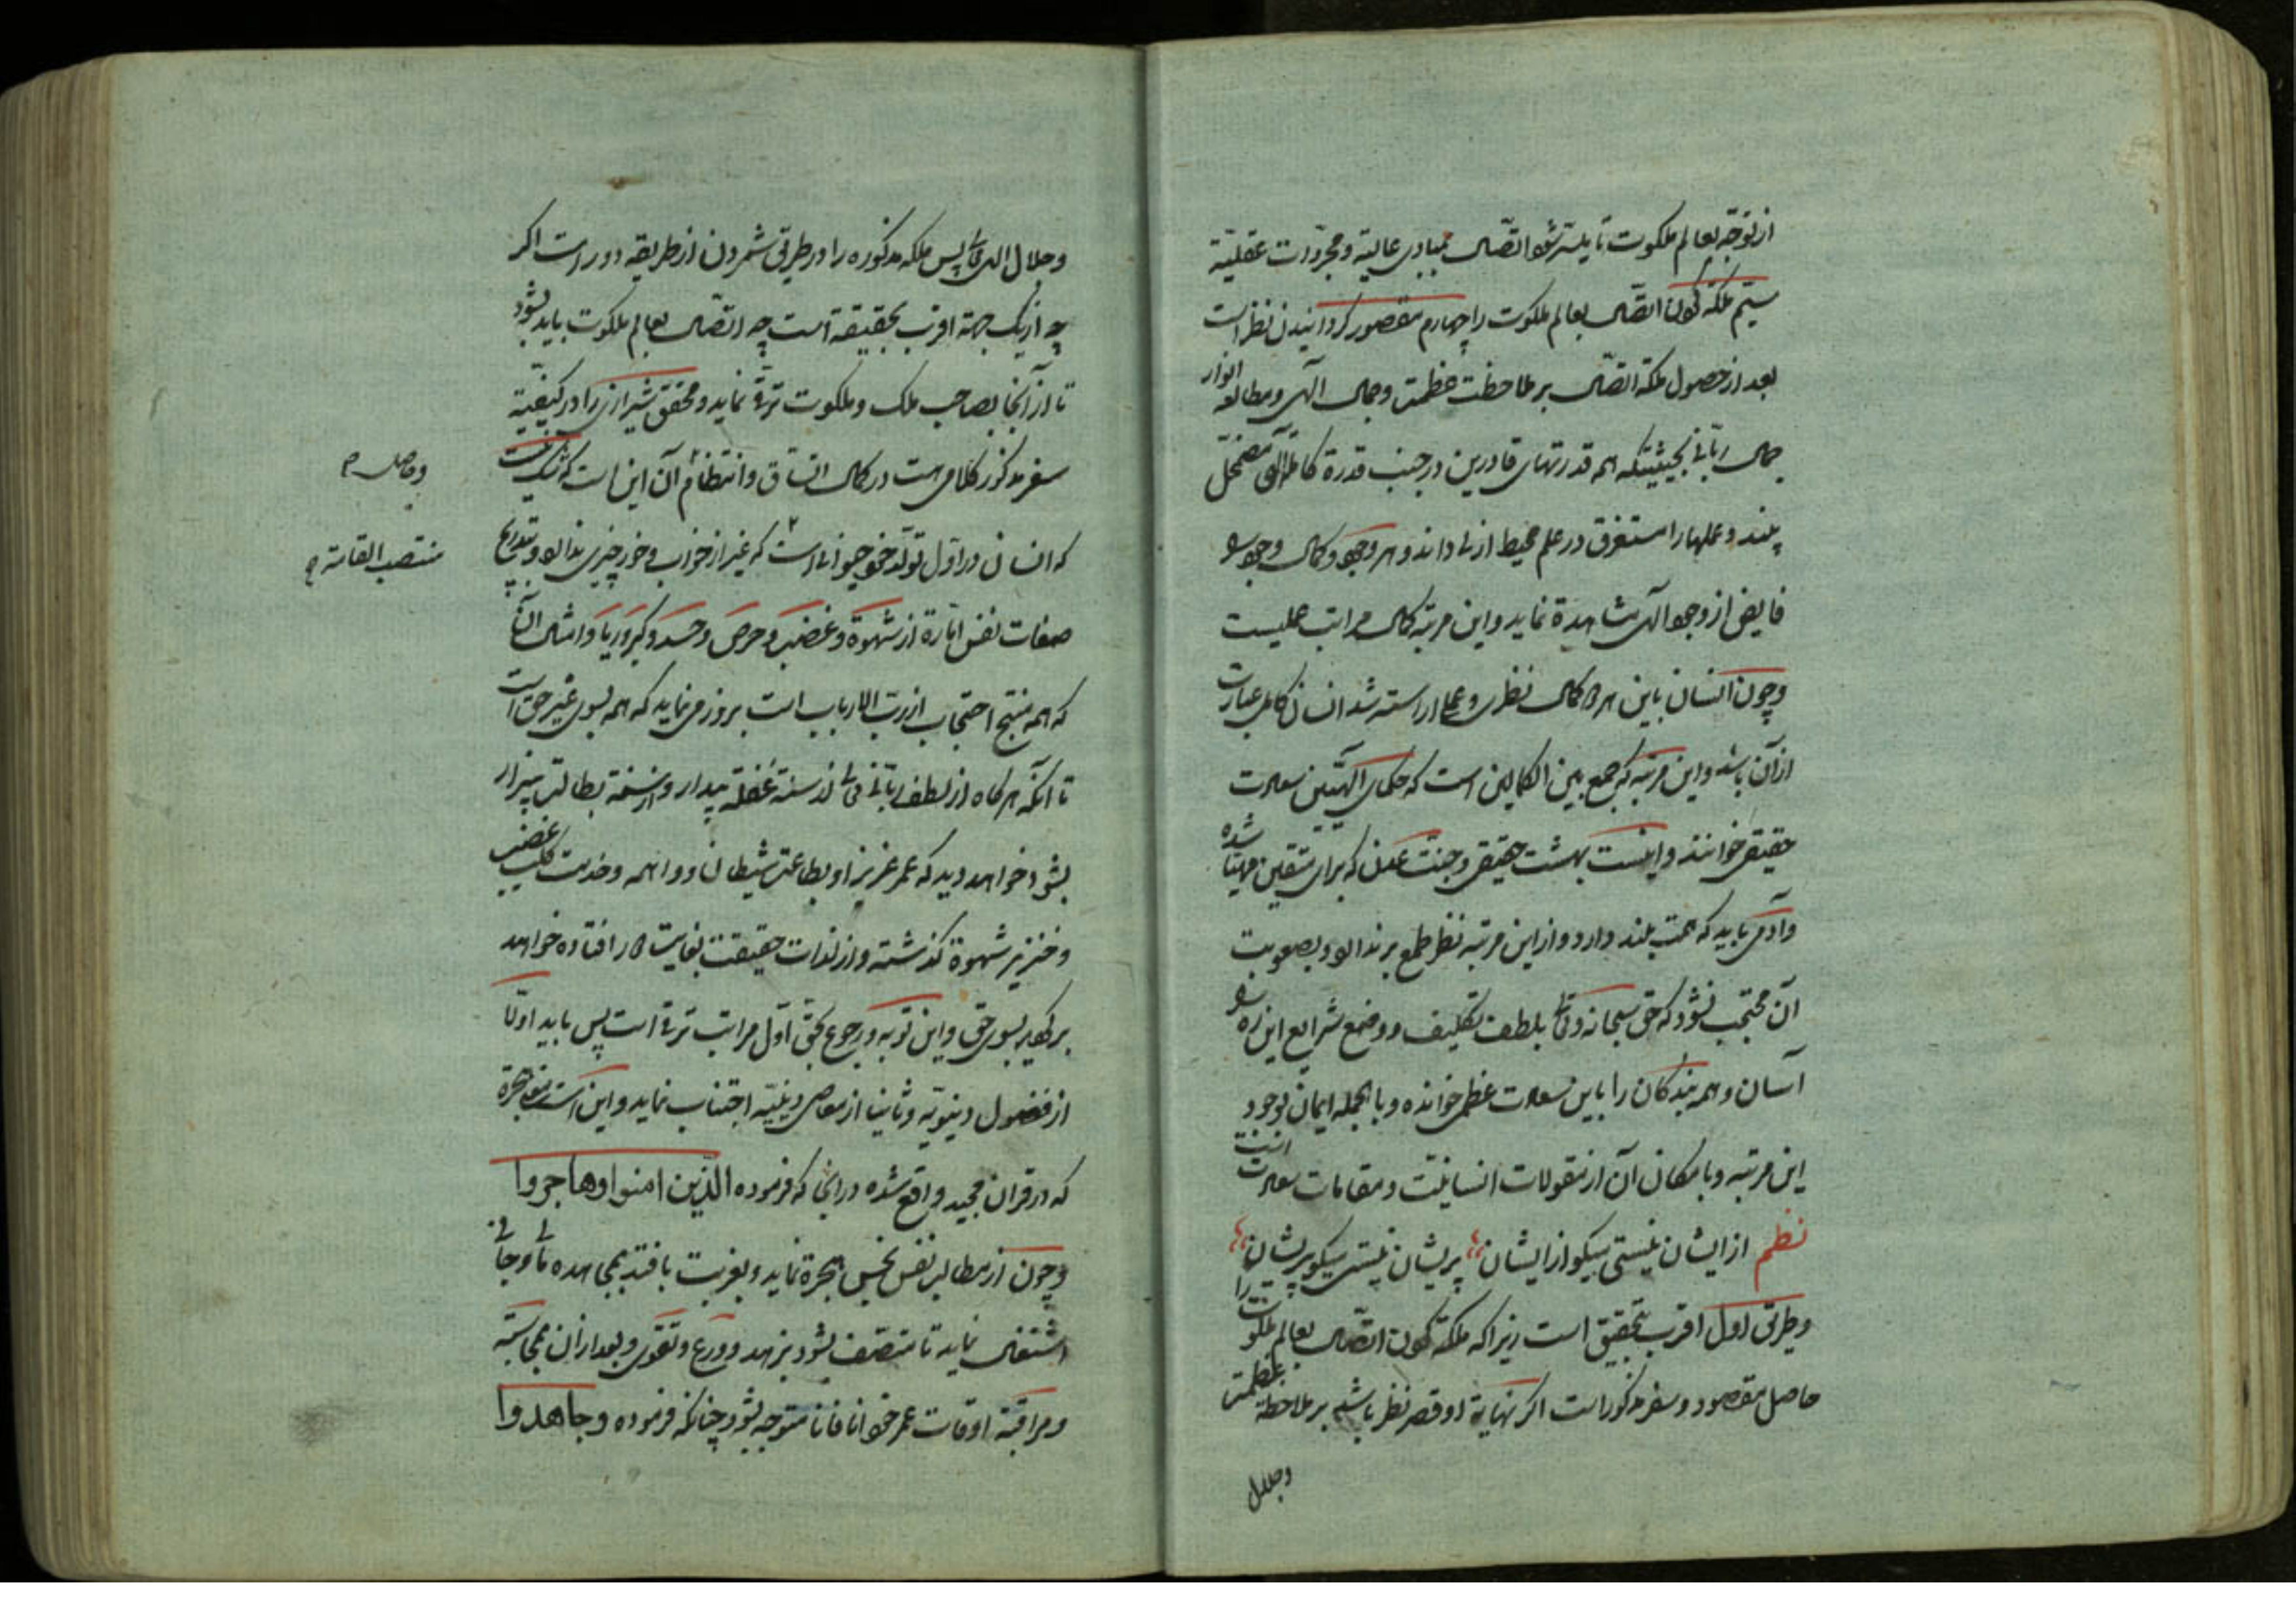 از توجّه بعالم ملکوت تا میسّر شود اتّصال بمبادی عالیة و مجرّدات عقلیّة
سیّم ملکه کون اتّصال بعالم ملکوت را چهارم مقصور کردانیدن نظر است
بعد از حصول ملکه اتّصال بر ملاحظت عظمت و جمال آلهی و مطالعه انوار
جمال ربّانی بحیثیتیکه همه قدرتهای قادرین در جنب قدرة کامله الهی مضمحل
بیند و علمها را مستغرق در علم محیط ازلی داند و هر وجود و کمال وجود را
فایض از وجود آلهی مشاهدة نماید و این مرتبه کمال مراتب عملیست
و چون انسان باین هر دو کمال نظری و عملی اراسته شد انسان کامل عبارت
از آن باشد و این مرتبه کی جمع بین الکمالین است که حکمای آلهیّین سعادت
حقیقی خوانند و اینست بهشت حقیقی و جنّت عدن که برای متّقین مهیّا شده
و آدمی باید که همّت بلند دارد و از این مرتبه نظر طمع بر ندارد و بصعوبت
آن محتجب نشود که حق سبحانه و تعالی بلطف تکلیف و وضع شرایع این راه را
آسان و همه بندکان را باین سعادت عظمی خوانده و بالجمله ایمان بوجود
این مرتبه و بامکان آن از مقولات انسانیّت و مقامات سعادت است
نظم از ایشان نیستی میکو از ایشان پریشان نیستی میکو پریشان
و طریق اول اقرب بتحقیق است زیرا که ملکه کون اتّصال بعالم ملکوت را
حاصل مقصود و سفر مذکور است اکر نهایة او قصر نظر باشد بر ملاحظة عظمت
وجلال
و جلال الهی تعالی پس ملکه مذکوره را در طریق شمردن از طریقه دور است اکر
چه از یک جهة اقرب بحقیقة است چه اتّصال بعالم ملکوت باید بشود
تا از آنجا بصاحب ملک و ملکوت ترقّی نماید و محقق شیرازی را در کیفیّة
سفر مذکور کلامی هست در کمال اتّساق و انتظام و حاصل آن این است که
که انسان در اوّل تولّد خود حیوانی است منتصب القامة که غیر از خواب و خور چیزی نداند و بتدریج
صفات نفس امّارة از شهوة و غضب و حرص و حسد و کبر و ریا و امثال آنها
که همه منتج احتجاب از ربّ الارباب است بروز می نماید که همه بسوی غیر حق است
تا آنکه هر کاه از لطف ربّانی از سنة غفلة بیدار و از بطالت بیزار
بشود خواهد دید که عمر عزیز او بطاعت شیطان و واهمه و خدمت کلب غضب
و خنزیر شهوة کذشته و از لذات حقیقت بغایت دور افتاده خواهد
برکردید بسوی حق و این توبه و رجوع بحق اوّل مراتب ترقّی است پس باید اوّلا
از فضول دنیویّه و ثانیا از معاصی دینیّه اجتناب نماید و این است معنی هجرة
که در قران مجید واقع شده در انجا که فرموده الّذین امنوا و هاجروا
و چون از مطالب نفس خسیس هجرة نماید و بغربت بافتد بمجاهده مالی و جانی
اشتغال نماید تا متّصف بشود بزهد و ورع و تقوی و بعد از ان بمحاسبة
و مراقبة اوقات عمر خود انا فانا متوجه بشود چنانکه فرموده و جاهدوا